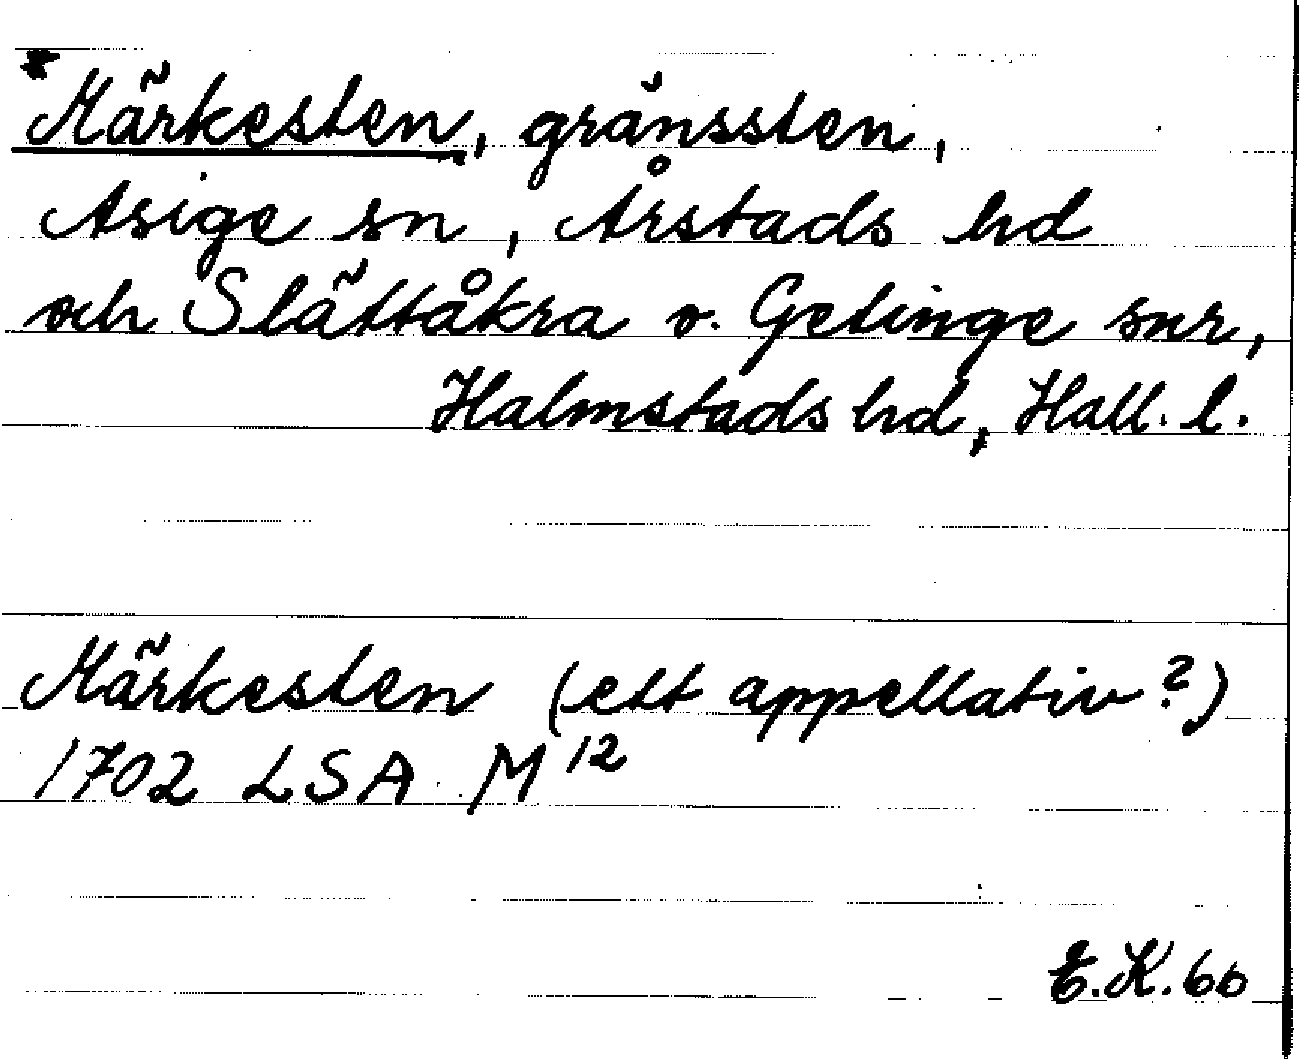 *Märkesten, gränssten,
Asige sn, Årstads hd
och Slättåkra o. Getinge snr,
Halmstads hd, Hall. l.
Märkesten (ett appellativ?)
1702 LSA M 12
E.K. 66